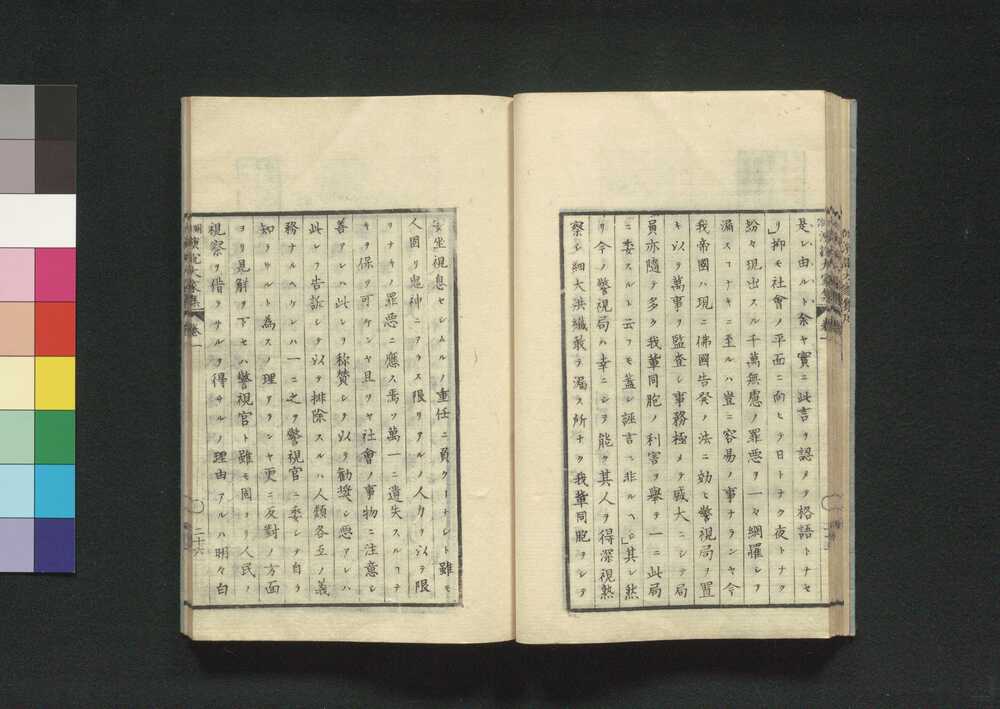 是レ由ルト余ヤ實ニ此言ヲ認メテ格語トナセ
リ抑モ社會ノ平面ニ向ヒテ日トナク夜トナク
紛々現出スル千萬無慮ノ罪惡ヲ一々網羅シテ
漏スヿナキニ至ルハ豈ニ容易ノ事ナランヤ今
我帝國ハ現ニ佛國告發ノ法ニ効ヒ警視局ヲ置
キ以テ萬事ヲ監査シ事務極メテ盛大ニシテ局
員亦隨テ多ク我輩同胞ノ利害ヲ擧テ一ニ此局
ニ委スルト云フモ蓋シ誣言ニ非ルヘシ其レ然
リ今ノ警視局ハ幸ニシテ能ク其人ヲ得深視熟
察シ細大洪纎敢テ漏ス所ナク我輩同胞ヲシテ
安坐視息セシムルノ重任ニ負クーナシト雖モ
人固リ鬼神ニアラス限リアルノ人力ヲ以テ限
リナキノ罪惡ニ應ス焉ソ萬一ニ遺失スルヿナ
キヲ保ツ可ケンヤ且ツヤ社會ノ事物ニ注意シ
善アレハ此レヲ稱賛シテ以テ勸奬シ惡アレハ
此レヲ告訴シテ以テ排除スルハ人類各互ノ義
務ナルヘケレハ一ニ之ヲ警視官ニ委シテ自ラ
知ラサルト為スノ理アランヤ更ニ反對ノ方面
ヨリ見解ヲ下セハ警視官ト雖モ固ヨリ人民ノ
視察ヲ借ラサルヲ得サルノ理由アルハ明々白
演説大家集 卷一
二十六